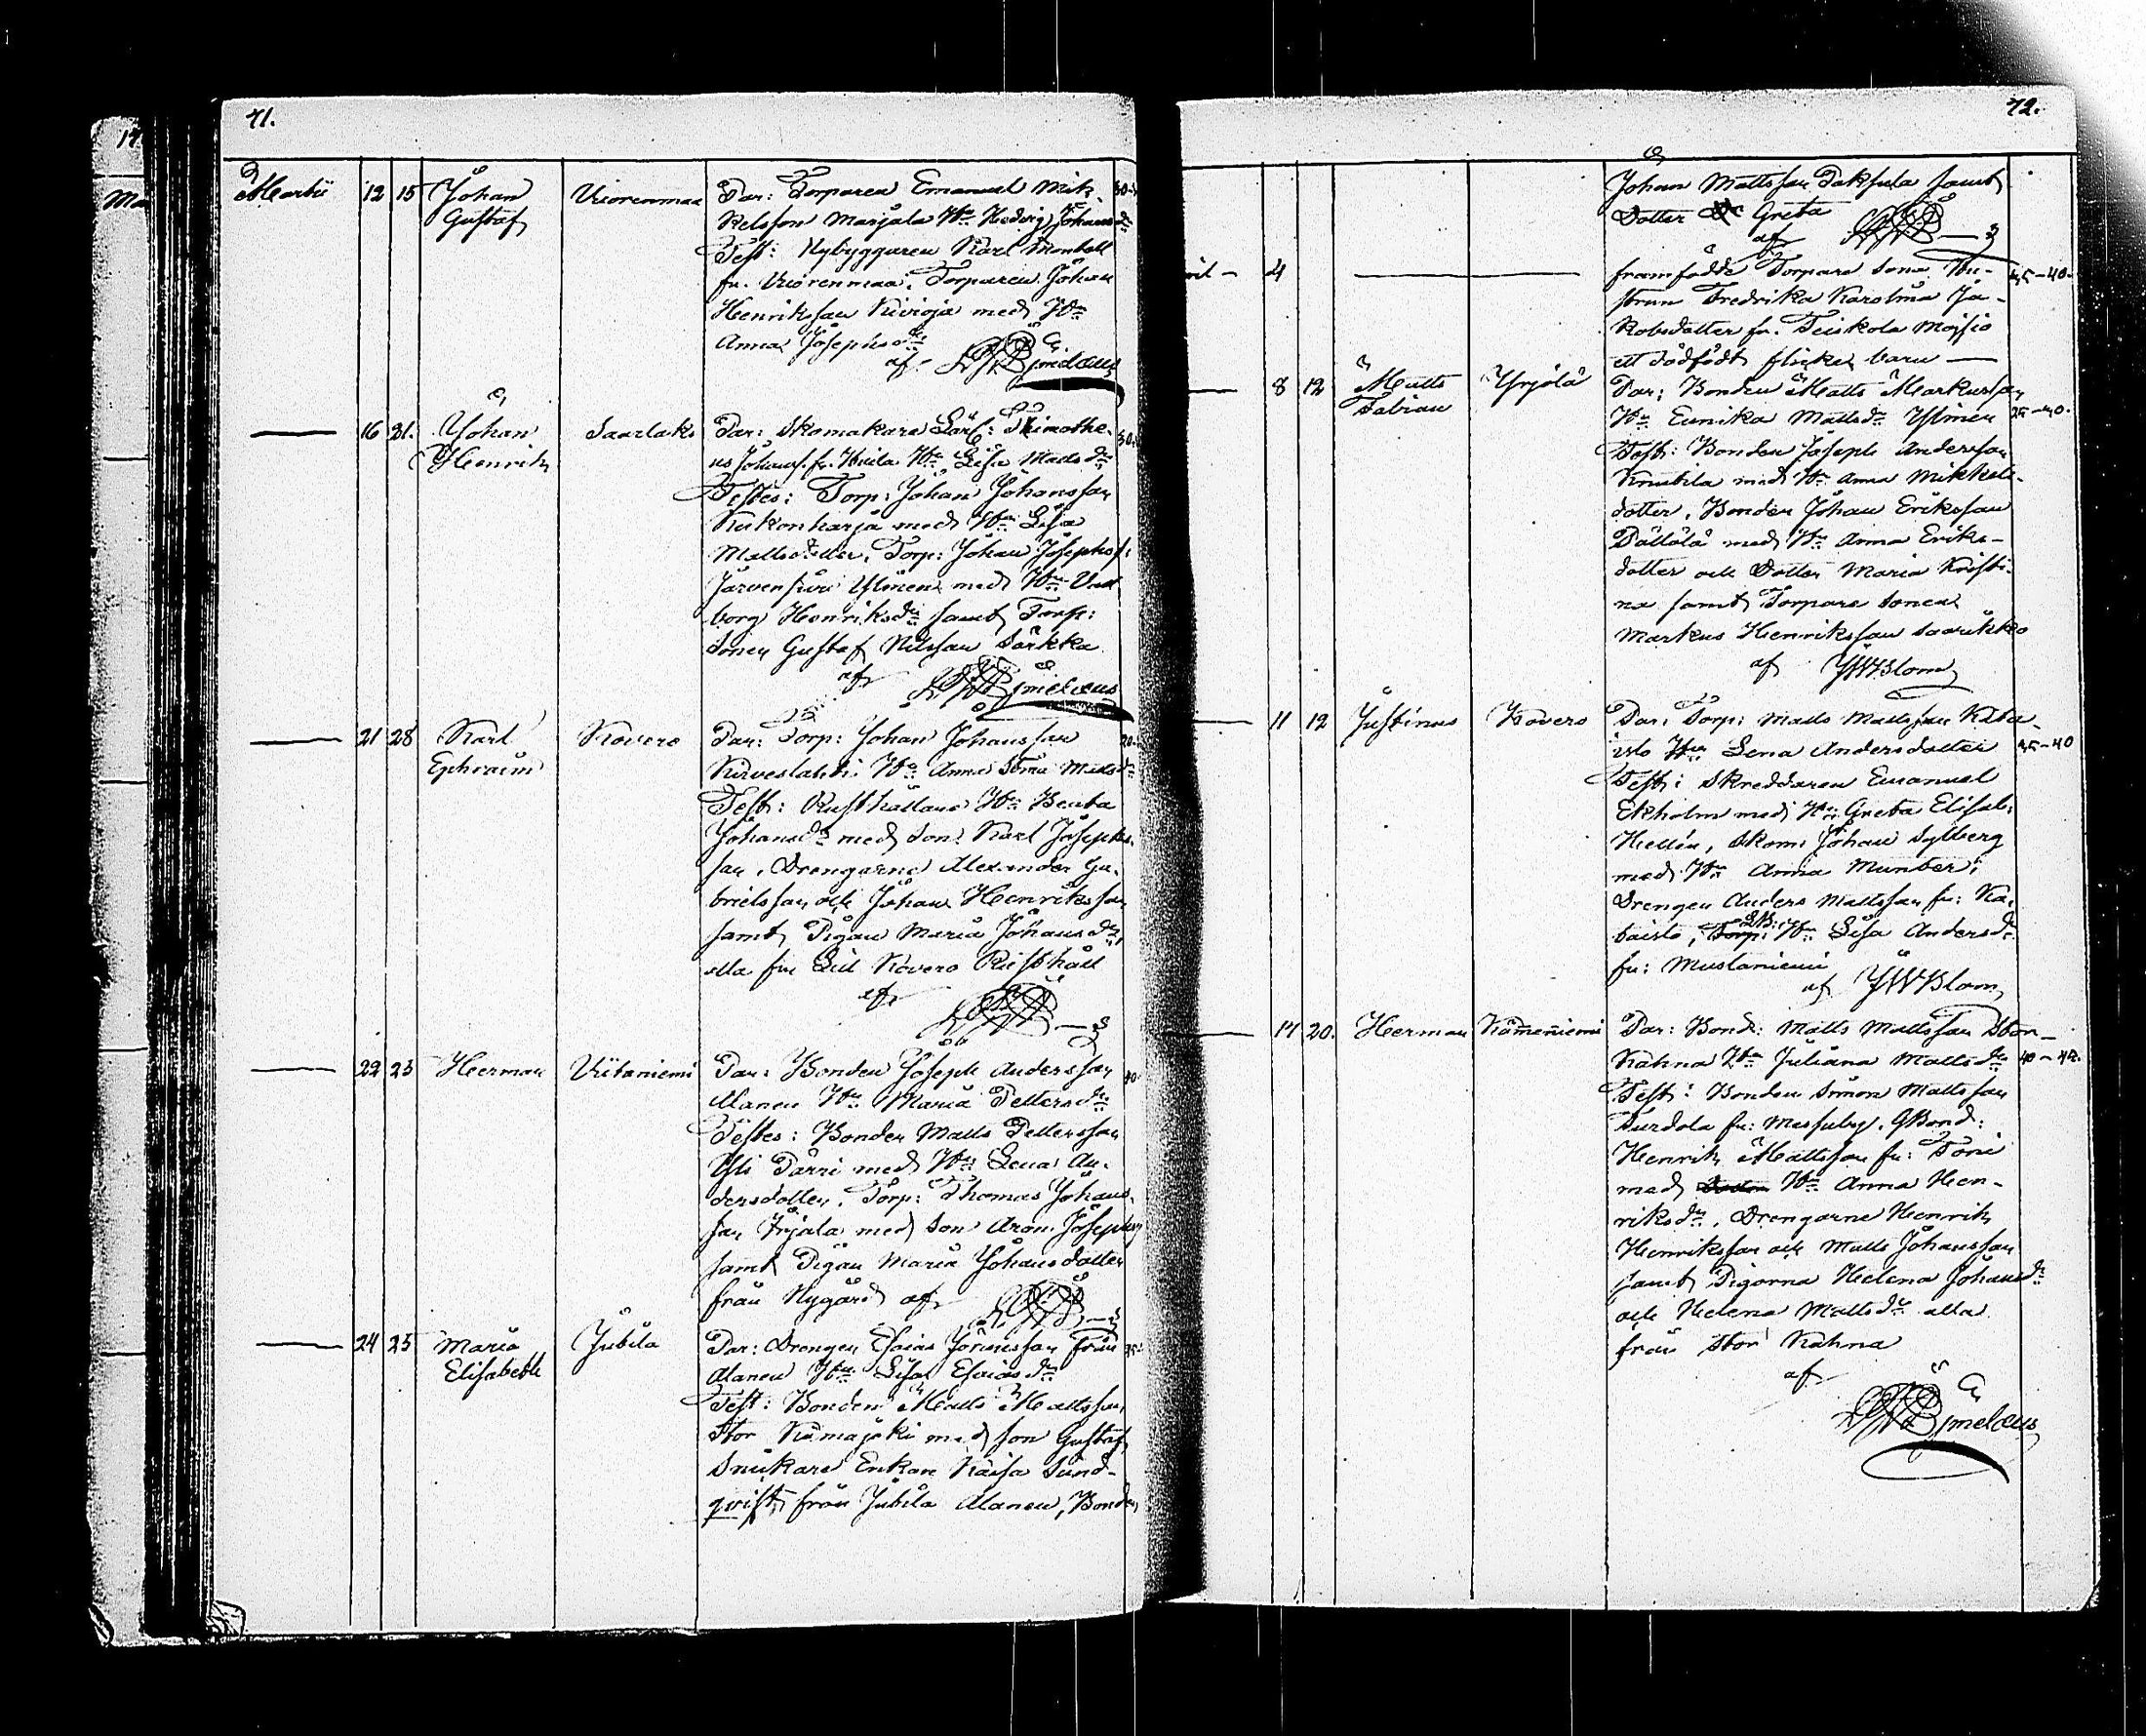 71.
Martii 12 15 Johan Vuorenmaa Par: Torparen Emanuel Mik-
Gustaf kelsson Marjala Hu Hedvig Johans dr
Test: Nybyggaren Karl Montell
fr. Vuorenmaa, Torparen Johan
Henriksson Kivioja med Hu
Anna Josephsdr
af
16 21. Johan Saarlaks Par: Skomakare Lärl: Timothe-
Henrik us Johans. fr. Lisa Matsdr
Testes: Torp: Johan Johansson
Kukonharja med Hu Lisa
Mattsdotter, Torp: Johan Josephs.
med Hu Val
borg Henriksdr samt Torp:
Sonen Gustaf Nilsson Särkka
af
21 28 Karl Kovero Par: Torp: Johan Johansson
Ephraim Kirveslahti Hu Anna Stina Matsdr
Test: Rusthållare Hu Beata
Johansdr med Son Karl Josephs-
son, Drengarne Alexander Ga-
brielsson och Johan Henriksson
samt Pigan Maria Johansdr,
alla fr. Lill Kovero Rusthåll
af
22 23 Herman Viitaniemi Par: Bonden Joseph Andersson
Alanen Hu Maria Pettersdr
Testes: Bonden Matts Pettersson
Yli Pärri med Hu Lena An-
dersdotter, Torp: Thomas Johans-
son Yrjälä med Son Aron Josephs
samt Pigan Maria Johansdotter
från Nygård af
24 25 Maria Jutila Par: Drengen Esaias från
Elisabeth Alanen Hu Lisa Esaiasdr
Test: Bonden Matts Mattsson
Stor med son Gustaf,
Snickare Enkan Kaisa Sund-
qvist från Jutila Alanen, Bonden
72.
Johan Mattsson Paksula samt
Dotter Greta
af
4 framfödde Torpare Sone Hu- 35-40.
strun Fredrika Karolina Ja-
kobsdotter fr. Teiskola Moisio
ett dödfödt flicke barn
8 12 Matts Yrjölä Par: Bonden Matts Markusson
Fabian Hu Eunika Mattsdr Ylinen 35-40.
Test: Bonden Joseph Andersson
Knuutila med Hu Anna Mikkels-
dotter, Bonden Johan Eriksson
med Hu Anna Eriks-
dotter och Dotter Maria Kristi-
na samt Torpare Sonen
Markus Henriksson Saarikko
af JWBlom
11 12 Justinus Kovero Par: Torp: Matts Mattsson Kata-
isto Hu Lena Andersdotter 35-40
Test: Skreddaren Emanuel
Ekholm med Hu: Greta Elisab:
Hellén, Skom: Johan Sylberg
med Hu Anna Munter,
Drengen Anders Mattsson fr: Ka-
taisto, Hu Lisa Andersdr
fr: Mustaniemi
af JWBlom
14 20. Herman Kämeniemi Par: Bond: Matts Mattsson Stor-
Kahna Hu Juliana Mattsdr 40-42.
Test: Bonden Simon Mattsson
fr: Messuby, Bond:
Henrik Mattsson fr:
med Hu Anna Hen-
riksdr, Drengarne Henrik
Henriksson och Matts Johansson
samt Pigorna Helena Johansdr
och Helena Mattsdr alla
från Stor Kahna
af